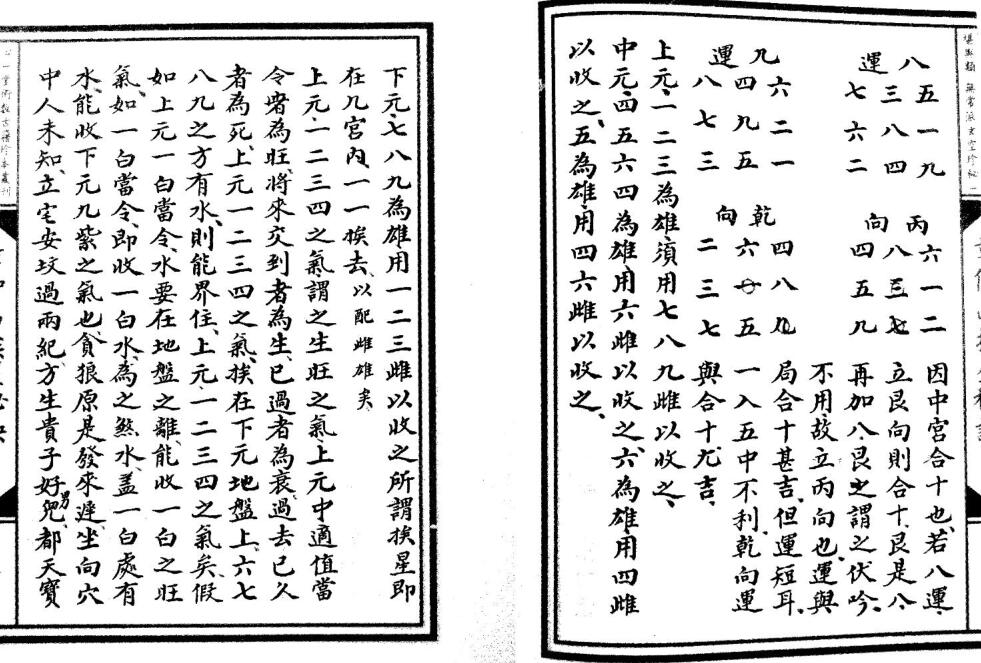 堪輿類 無常派玄空珍秘
八運
五一九
三八四
七六二
丙向
六一二
八三七
四五九
因中宮合十也、若八運、
立艮向則合十、艮是八、
再加八艮、謂之伏吟、
不用、故立丙向也、運與
九運
六二一
四九五
八七三
乾向
四八九
六 五
二三七
局合十甚吉、但運短耳、
一入五中不利、乾向運
與合十尤吉、
上元、一二三為雄、須用七八九雌以收之、
中元、四五六四為雄、用六雌以收之、六為雄、用四雌
以收之、五為雄、用四六雌以收之、
下元、七八九為雄、用一二三雌以收之、所謂挨星即
在九宮內、一一挨去、以配雌雄矣、
上元、一二三四之氣、謂之生旺之氣、上元中適值當
令者為旺、將來交到者為生、已過者為衰、過去已久
者為死、上元一二三四之氣、挨在下元地盤上、六七
八九之方有水、則能界住、上元、一二三四之氣矣、假
如上元一白當令、水要在地盤之離、能收一白之旺
氣、如一白當令、即收一白水、為之煞水、蓋一白處有
水、能收下元九紫之氣也、貪狼原是發來遲、坐向穴
中人未知、立宅安墳過兩紀、方生貴子好男兒、都天寶
心一堂術數古籍珍本叢刊